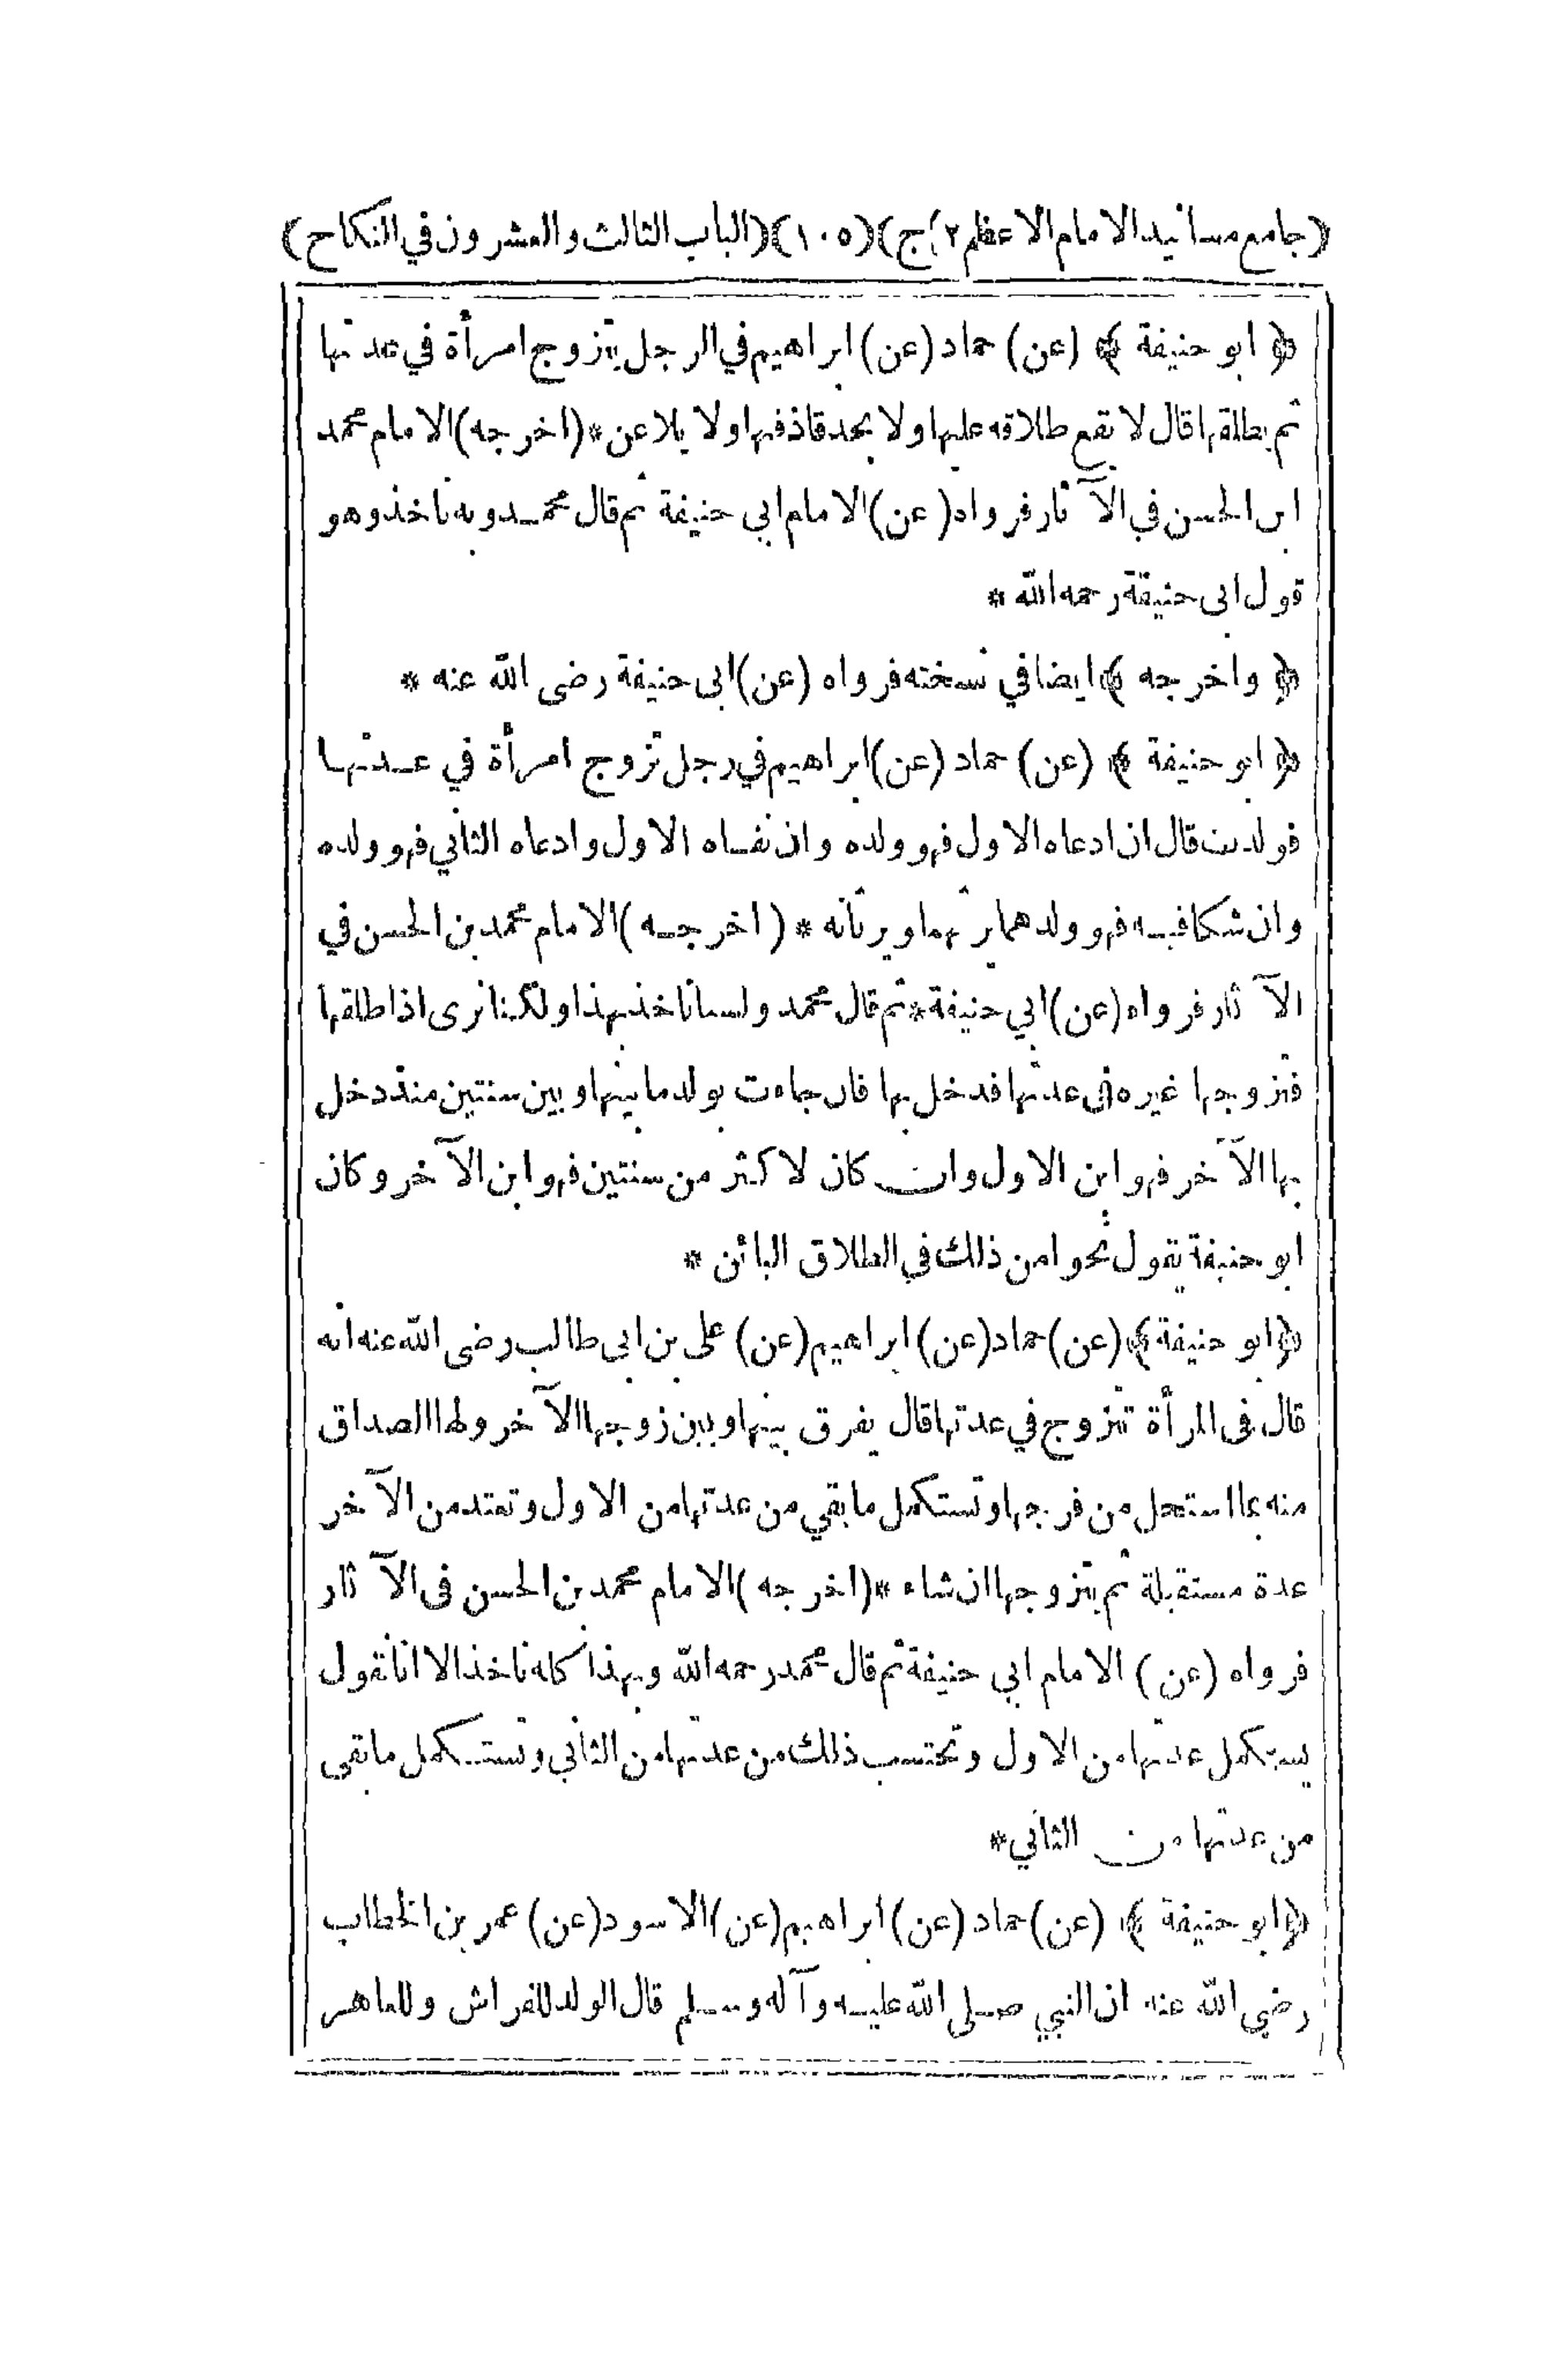 (جامع مسانيد الامام الاعظم ٢ ج) (١٠٥) (الباب الثالث والعشرون في النكاح)
﴿ ابو حنيفة ﴾ (عن) حماد (عن) ابراهيم في الرجل يتزوج امرأة في عدتها
ثم يطلقها قال لا يقع طلاقه عليها ولا يحد قاذفها ولا يلاعن * (اخرجه) الامام محمد
ابن الحسن في الآثار فرواه (عن) الامام ابي حنيفة ثم قال محمد وبه ناخذ وهو
قول ابى حنيفة رحمه الله *
﴿ واخرجه ﴾ ايضا في نسخته فرواه (عن) ابى حنيفة رضى الله عنه *
﴿ ابو حنيفة ﴾ (عن) حماد (عن) ابراهيم في رجل تزوج امرأة في عدتها
فولدت قال ان ادعاه الاول فهو ولده وان نفاه الاول وادعاه الثاني فهو ولده
وان شكا فيه فهو ولدهما يرثهما ويرثانه * (اخرجه) الامام محمد بن الحسن في
الآثار فرواه (عن) ابي حنيفة * ثم قال محمد ولسنا ناخذ بهذا ولكنا نرى اذا طلقها
فتزوجها غيره فى عدتها فدخل بها فان جاءت بولد ما بينها وبين سنتين منذ دخل
بها الآخر فهو ابن الاول وان كان لاكثر من سنتين فهو ابن الآخر وكان
ابو حنيفة يقول نحوا من ذلك في الطلاق البائن *
﴿ ابو حنيفة ﴾ (عن) حماد (عن) ابراهيم (عن) على بن ابى طالب رضى الله عنه انه
قال فى المرأة تتزوج في عدتها قال يفرق بينها وبين زوجها الآخر ولها الصداق
منه بما استحل من فرجها وتستكمل ما بقي من عدتها من الاول وتعتد من الآخر
عدة مستقبلة ثم يتزوجها ان شاء * (اخرجه) الامام محمد بن الحسن فى الآثار
فرواه (عن) الامام ابي حنيفة ثم قال محمد رحمه الله وبهذا كله ناخذ الا انا نقول
يستكمل عدتها من الاول وتحتسب ذلك من عدتها من الثاني وتستكمل ما بقى
من عدتها من الثاني *
﴿ ابو حنيفة ﴾ (عن) حماد (عن) ابراهيم (عن) الاسود (عن) عمر بن الخطاب
رضي الله عنه ان النبي صلى الله عليه وآله وسلم قال الولد للفراش وللعاهر